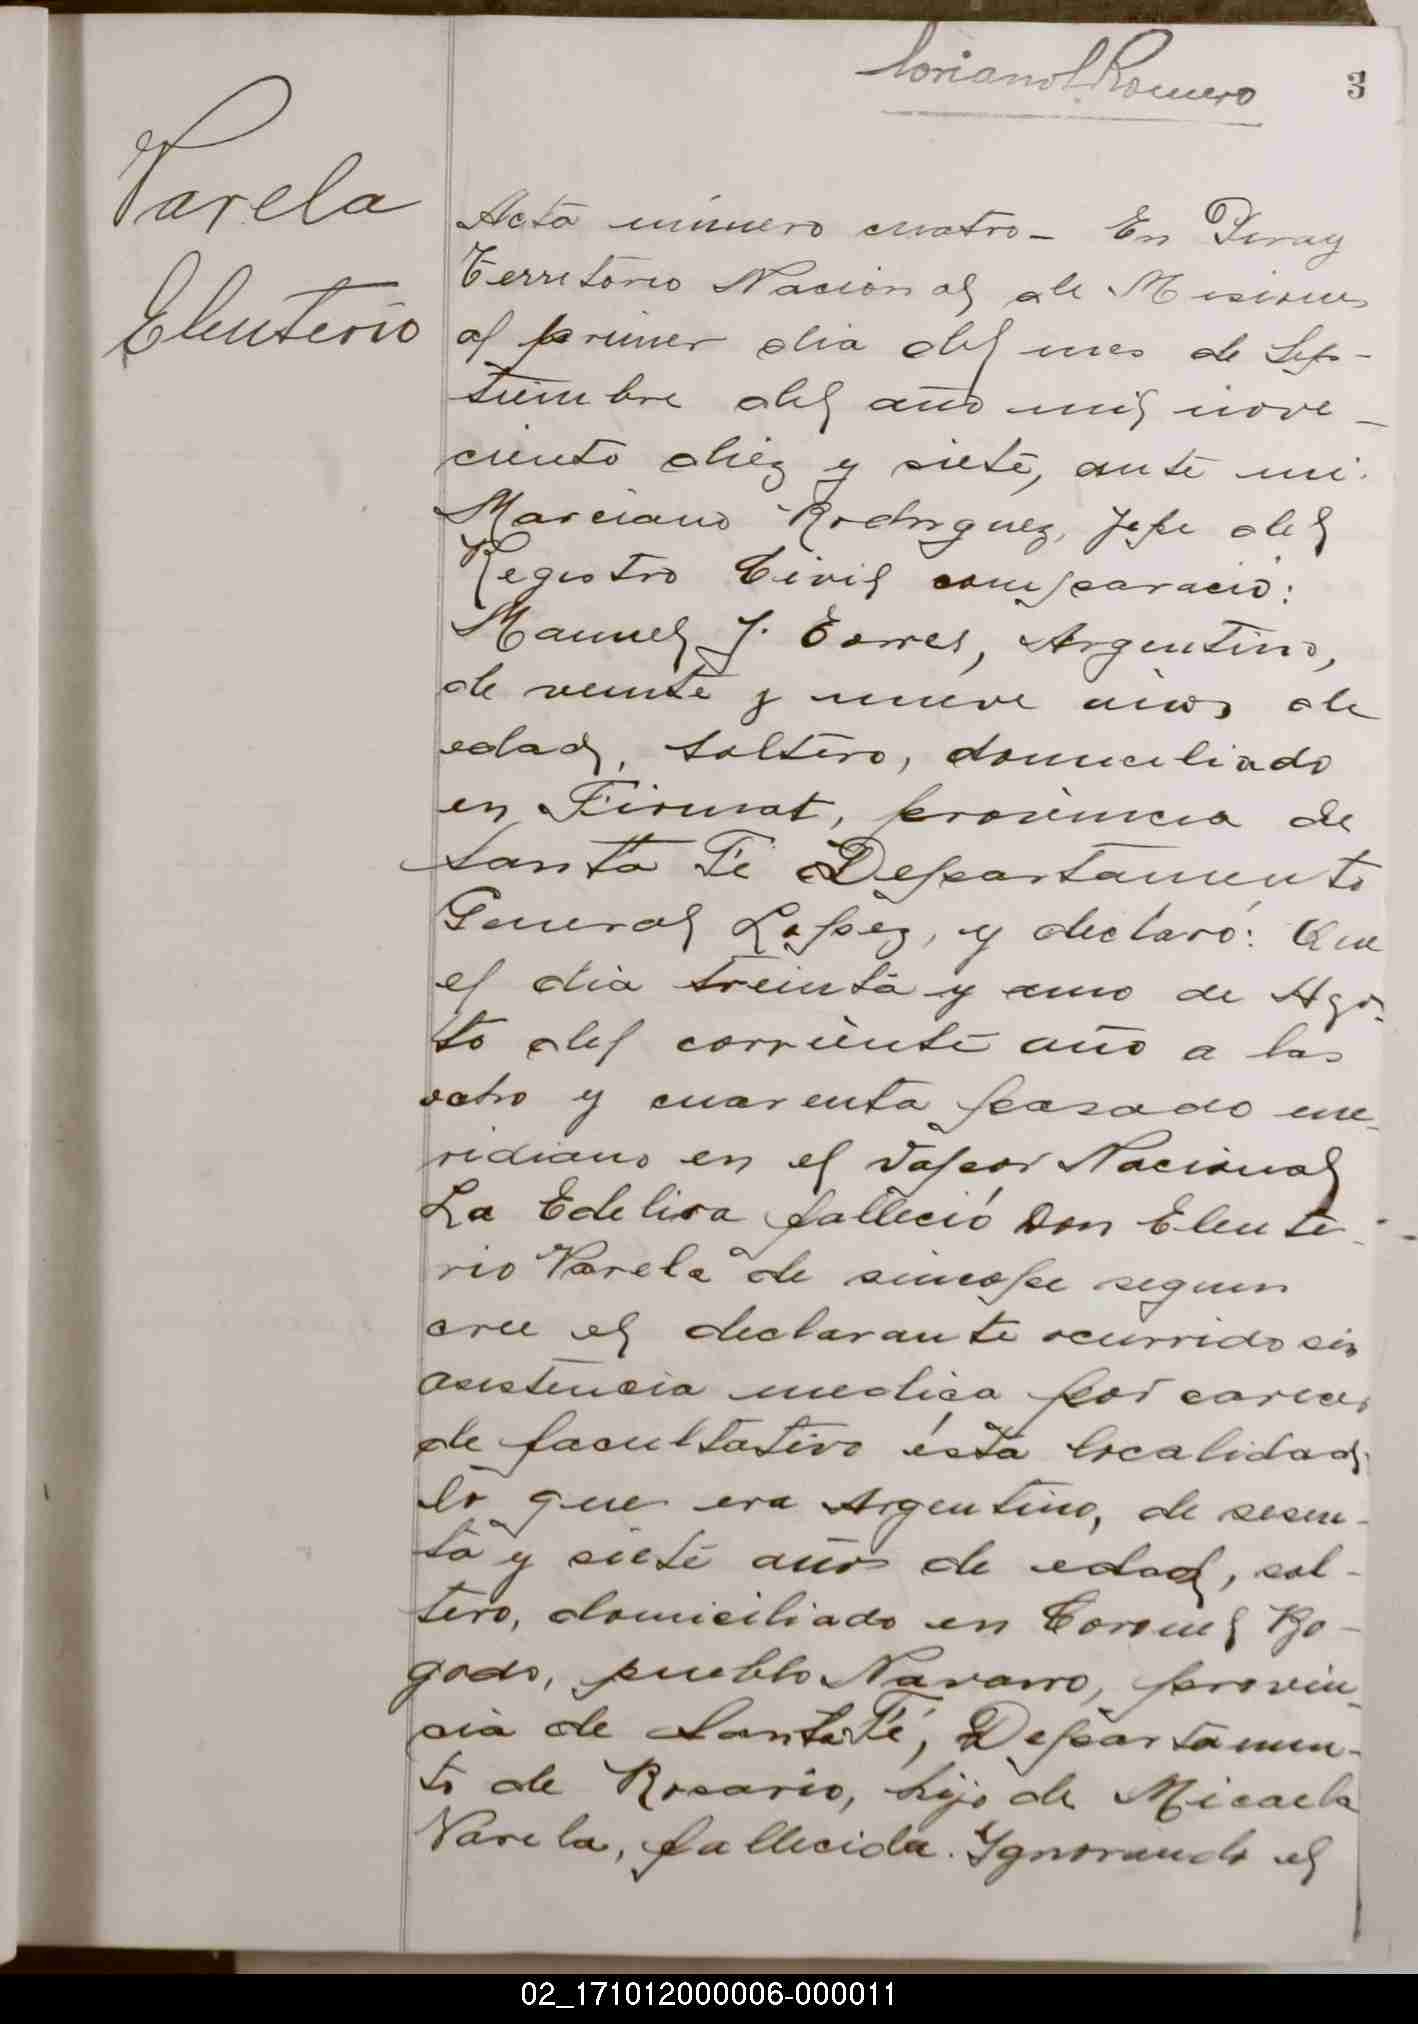 Soriano L. Romero
3
Varela
Eleuterio
Acta número cuatro - En Piray
Territorio Nacional de Misiones
al primer dia del mes de Sep-
tiembre del año mil nove-
ciento diez y siete, ante mi
Marciano Rodriguez, Jefe del
Registro Civil comparació:
Manuel J. Torres, Argentino,
de veinte y nueve años de
edad, soltero, domiciliado
en Firmat, provincia de
Santa Fé Departamento
General Lopez, y declaró: Que
el dia treinta y uno de Ago-
to del corriente año a las
ocho y cuarenta pasado me-
ridiano en el Vapor Nacional
La Edelira falleció Don Eleute-
rio Varela de sincope segun
cree el declarante ocurrido sin
asistencia medica por carecer
de facultativo ésta localidad,
lo que era Argentino, de sesen-
ta y siete años de edad, sol-
tero, domiciliado en Coronel Bo-
gado, pueblo Navarro, provin-
cia de Santa Fé, Departamen-
to de Rosario, hijo de Micaela
Varela, fallecida. Ygnorando el
02_171012000006-000011